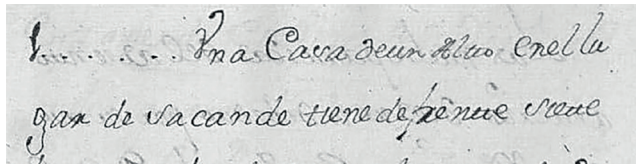 1. . . . . . . Vna Casa de un Alto en el lu
gar de Vacande tiene de frente siete